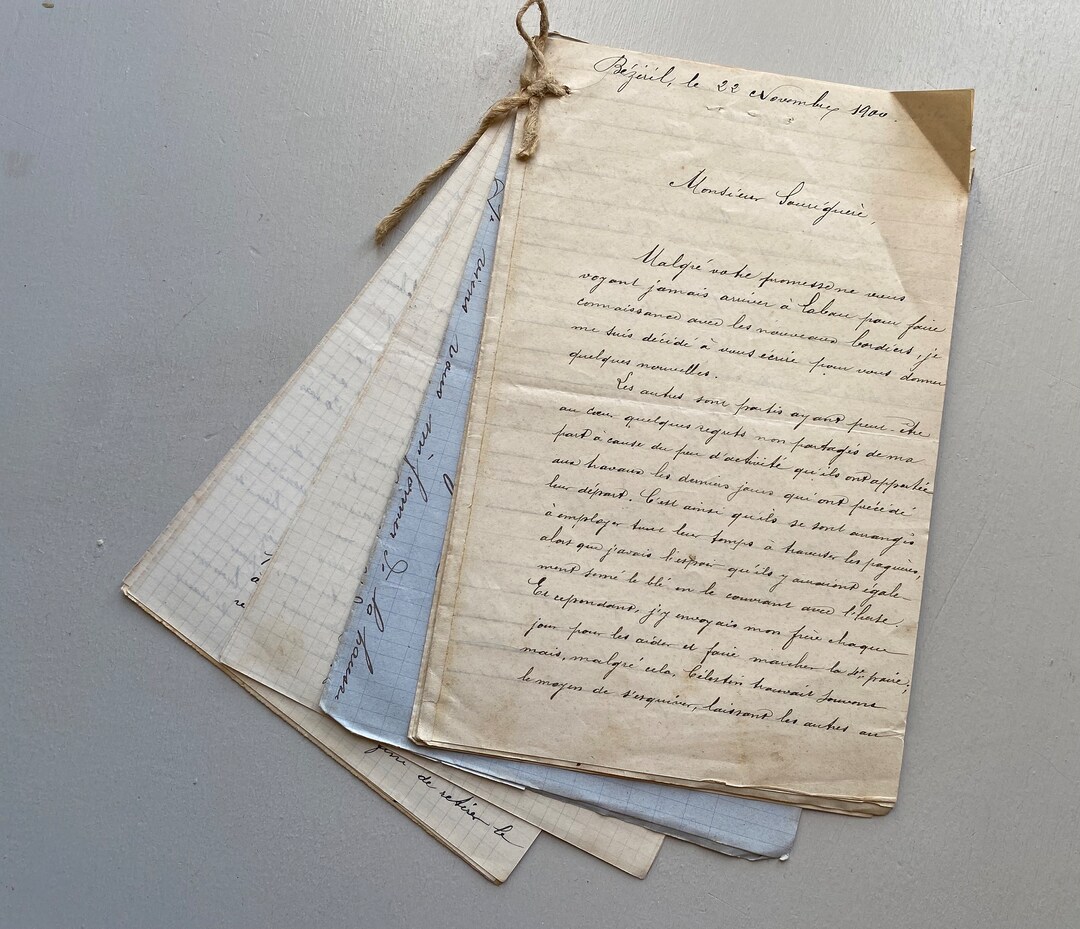 Bézéril, le 22 Novembre 1900.
Monsieur
Malgré votre promesse ne vous
voyant jamais arriver à pour faire
connaissance avec les nouveaux bordiers, je
me suis décidé à vous écrire pour vous donner
quelques nouvelles.
Les autres sont partis ayant peut-être
au cœur quelques regrets non partagés de ma
part à cause du peu d'activité qu'ils ont apportée
aux travaux les derniers jours qui ont précédé
leur départ. C'est ainsi qu'ils se sont arrangés
à employer tout leur temps à traverser les
alors que j'avais l'espoir qu'ils y auraient égale-
ment semé le blé en le couvrant avec l'herse.
Et cependant, j'y envoyais mon frère chaque
jour pour les aider et faire marcher la paire;
mais, malgré cela, Célestin trouvait souvent
le moyen de s'esquiver, laissant les autres au
viens vous
de la
à
re
de retirer le